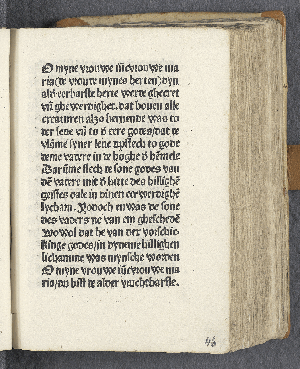 O myne vrouwe iūcvrouwe ma
ria/de vrouwe mynes herten/dyn
alð eerbarste herte werte gheeret
vñ ghewerdighet. dat bouen alle
creaturen alzo bernende was to
der leue vñ to ð eere godes/dat de
vlāme syner leue vpstech to gode
deme vadere in de höghe ð hēmele
Darūme stech de sone godes van
dē vadere mit ð hitte des hillighē
geistes dale in dinen eerwerdighē
lycham. Yodoch en was de sone
des vaders ne van em gheschedē
Wowol dat he van der vorschic
kinge godes/in dyneme hillighen
lichamme was mynsche worden
O myne vrouwe iūcvrouwe ma
ria/du bist de alder vruchtbarste.
46